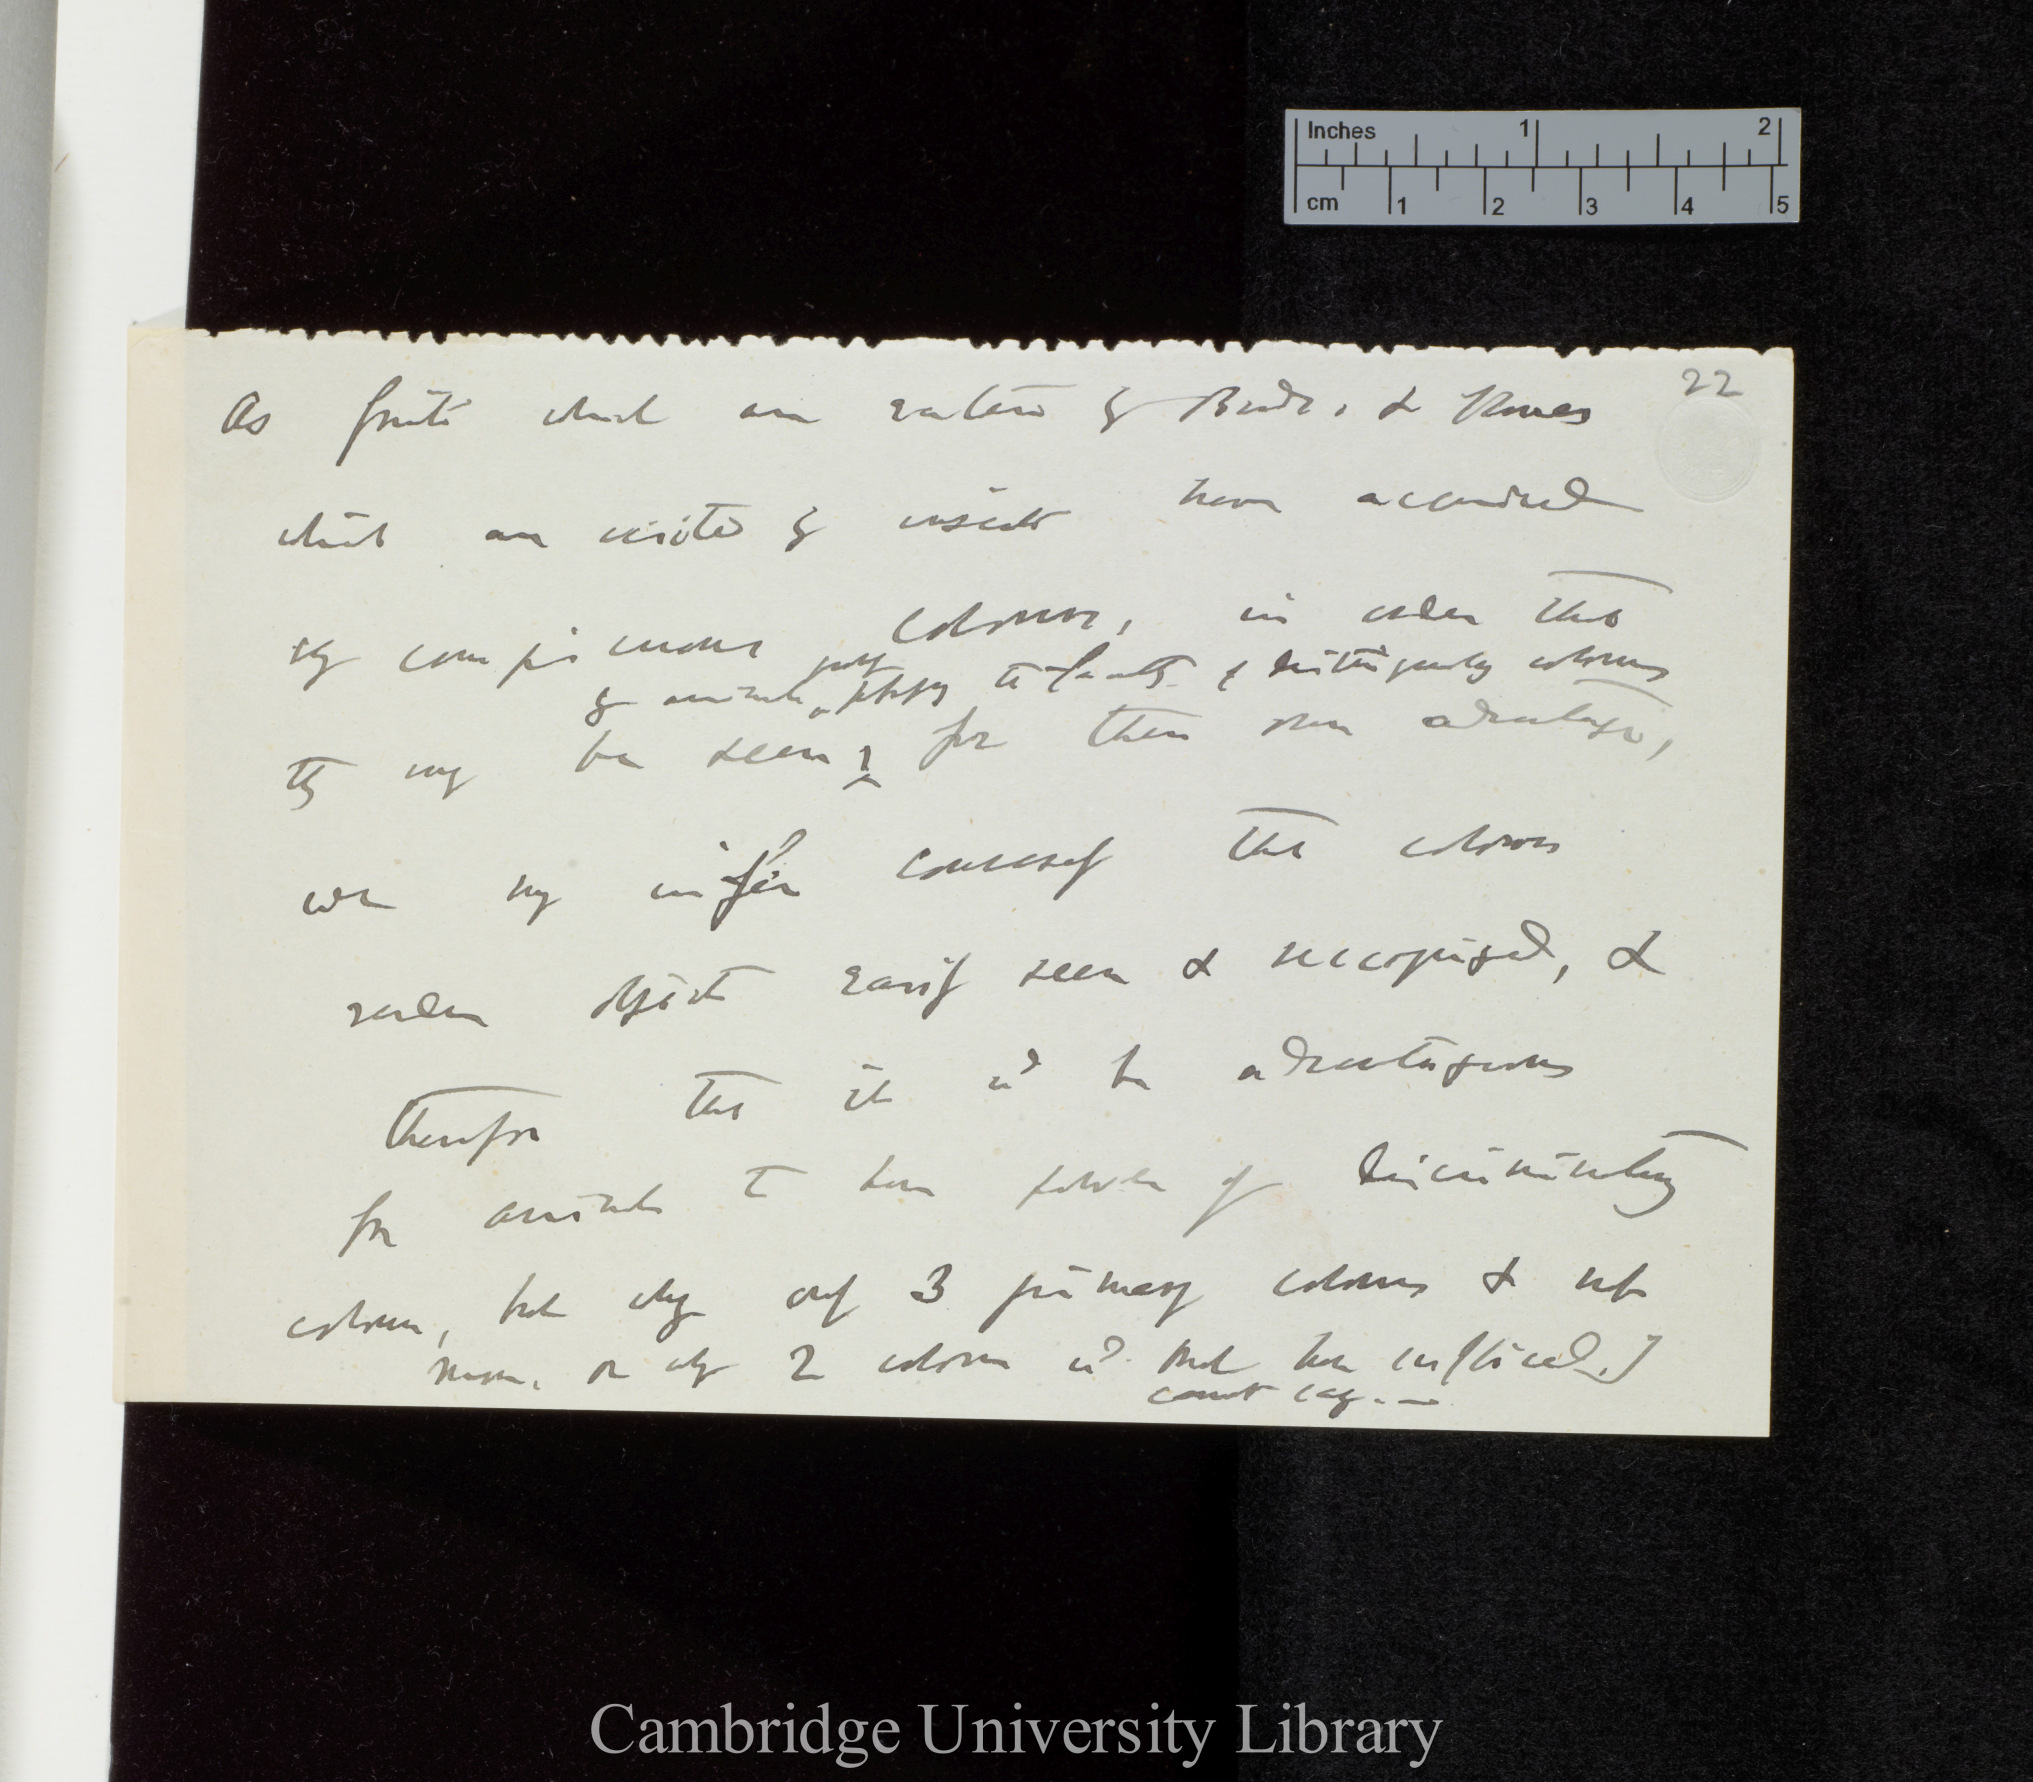 Inches 1 2
cm 1 2 3 4 5
22
As fruits which are eaten by Birds, & flowers
which are visited by insects have acquired
conspicuous colours, in order that
by animals to &
they may be seen for their own advantage,
we may infer conversely that colours
render objects easily seen & recognised, &
therefore that it wd be advantageous
for animals to have power of discriminating
colours, but why only 3 primary colours & not
more. or why 2 colours wd not have sufficed.]
cannot say. —
Cambridge University Library